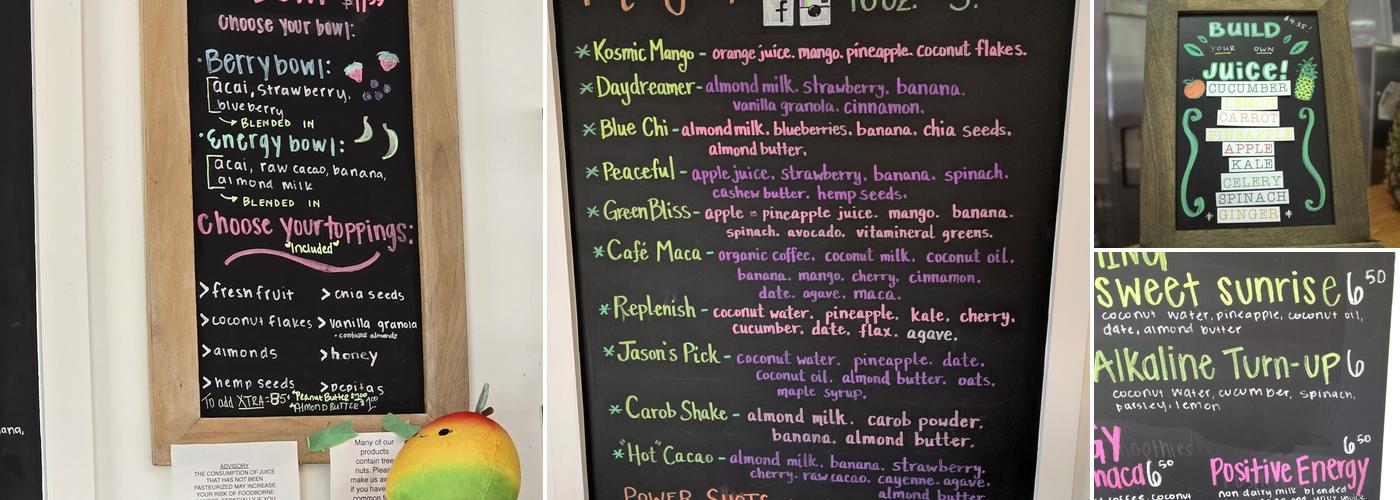 Choose your bowl:
·Berry bowl:
acai, strawberry,
blueberry
BLENDED IN
·Energy bowl:
acai, raw cacao, banana,
almond milk
BLENDED IN
Choose your toppings:
"Included"
>fresh fruit >chia seeds
>coconut flakes >vanilla granola
·contains almonds
>almonds >honey
>hemp seeds >pepitas
To add XTRA=85¢ *Peanut Butter $1.00
*Almond Butter $1.00
ana,
ADVISORY
THE CONSUMPTION OF JUICE
THAT HAS NOT BEEN
PASTEURIZED MAY INCREASE
YOUR RISK OF FOODBORNE
Many of our
products
contain tree
nuts. Please
make us aw
if you have
common f
*Kosmic Mango - orange juice. mango. pineapple. coconut flakes.
*Daydreamer - almond milk. strawberry. banana.
vanilla granola. cinnamon.
*Blue Chi - almond milk. blueberries. banana. chia seeds.
almond butter.
*Peaceful - apple juice. strawberry. banana. spinach.
cashew butter. hemp seeds.
*Green Bliss - apple = pineapple juice. mango. banana.
spinach. avocado. vitamineral greens.
*Café Maca - organic coffee. coconut milk. coconut oil.
banana. mango. cherry. cinnamon.
date. agave. maca.
*Replenish - coconut water. pineapple. kale. cherry.
cucumber. date. flax. agave.
*Jason's Pick - coconut water. pineapple. date.
coconut oil. almond butter. oats.
maple syrup.
*Carob Shake - almond milk. carob powder.
banana. almond butter.
*"Hot" Cacao - almond milk. banana. strawberry.
cherry. raw cacao. cayenne. agave.
almond butter
POWER SHOTS
BUILD
YOUR OWN
JUICE!
CUCUMBER
LEMON
CARROT
PINEAPPLE
APPLE
KALE
CELERY
SPINACH
GINGER
sweet sunrise 6.50
coconut water, pineapple, coconut oil,
date, almond butter
Alkaline Turn-up 6
coconut water, cucumber, spinach,
parsley, lemon
maca 6.50
6.50
Positive Energy
coffee, coconut
non dairy milk blended